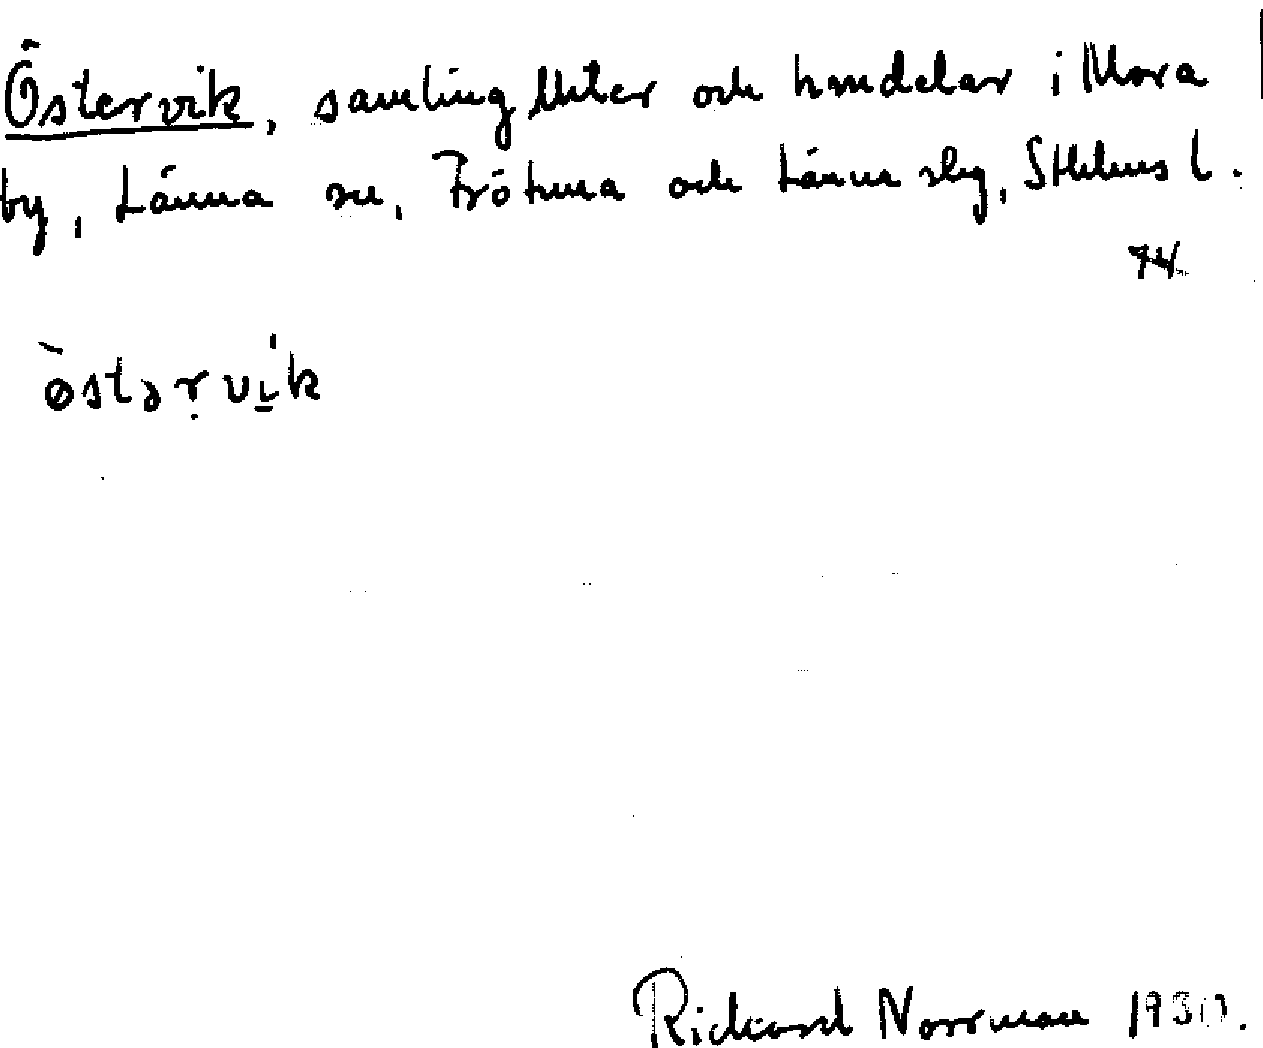 Östervik, samling    och handelar i Mora
by, Länna sn, Frötuna och Länna slg, Sthlms l.
74.
östərvik
Rickard Norrman 1930.